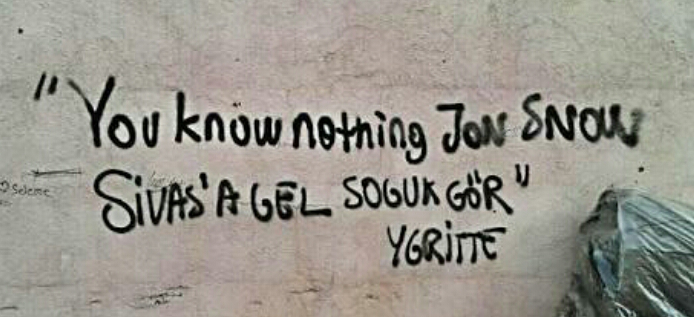 "You know nothing Jon SNOW
SiVAS'A GEL SOGUK GÖR"
YGRiTTE
Seleme